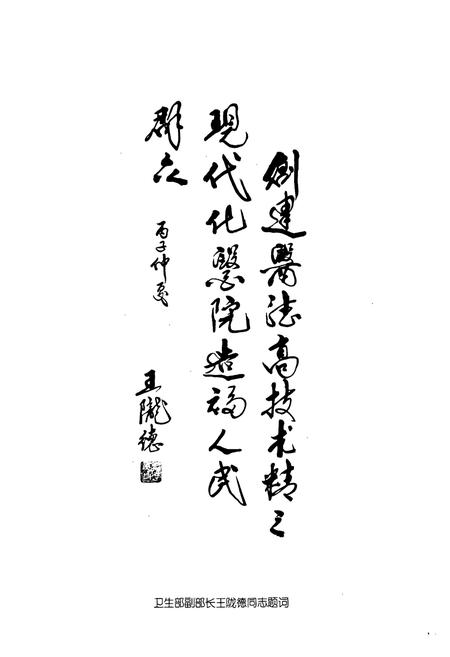 創建醫德高技术精之
現代化醫院造福人民
群众
丙子仲夏
王隴德
卫生部副部长王陇德同志题词